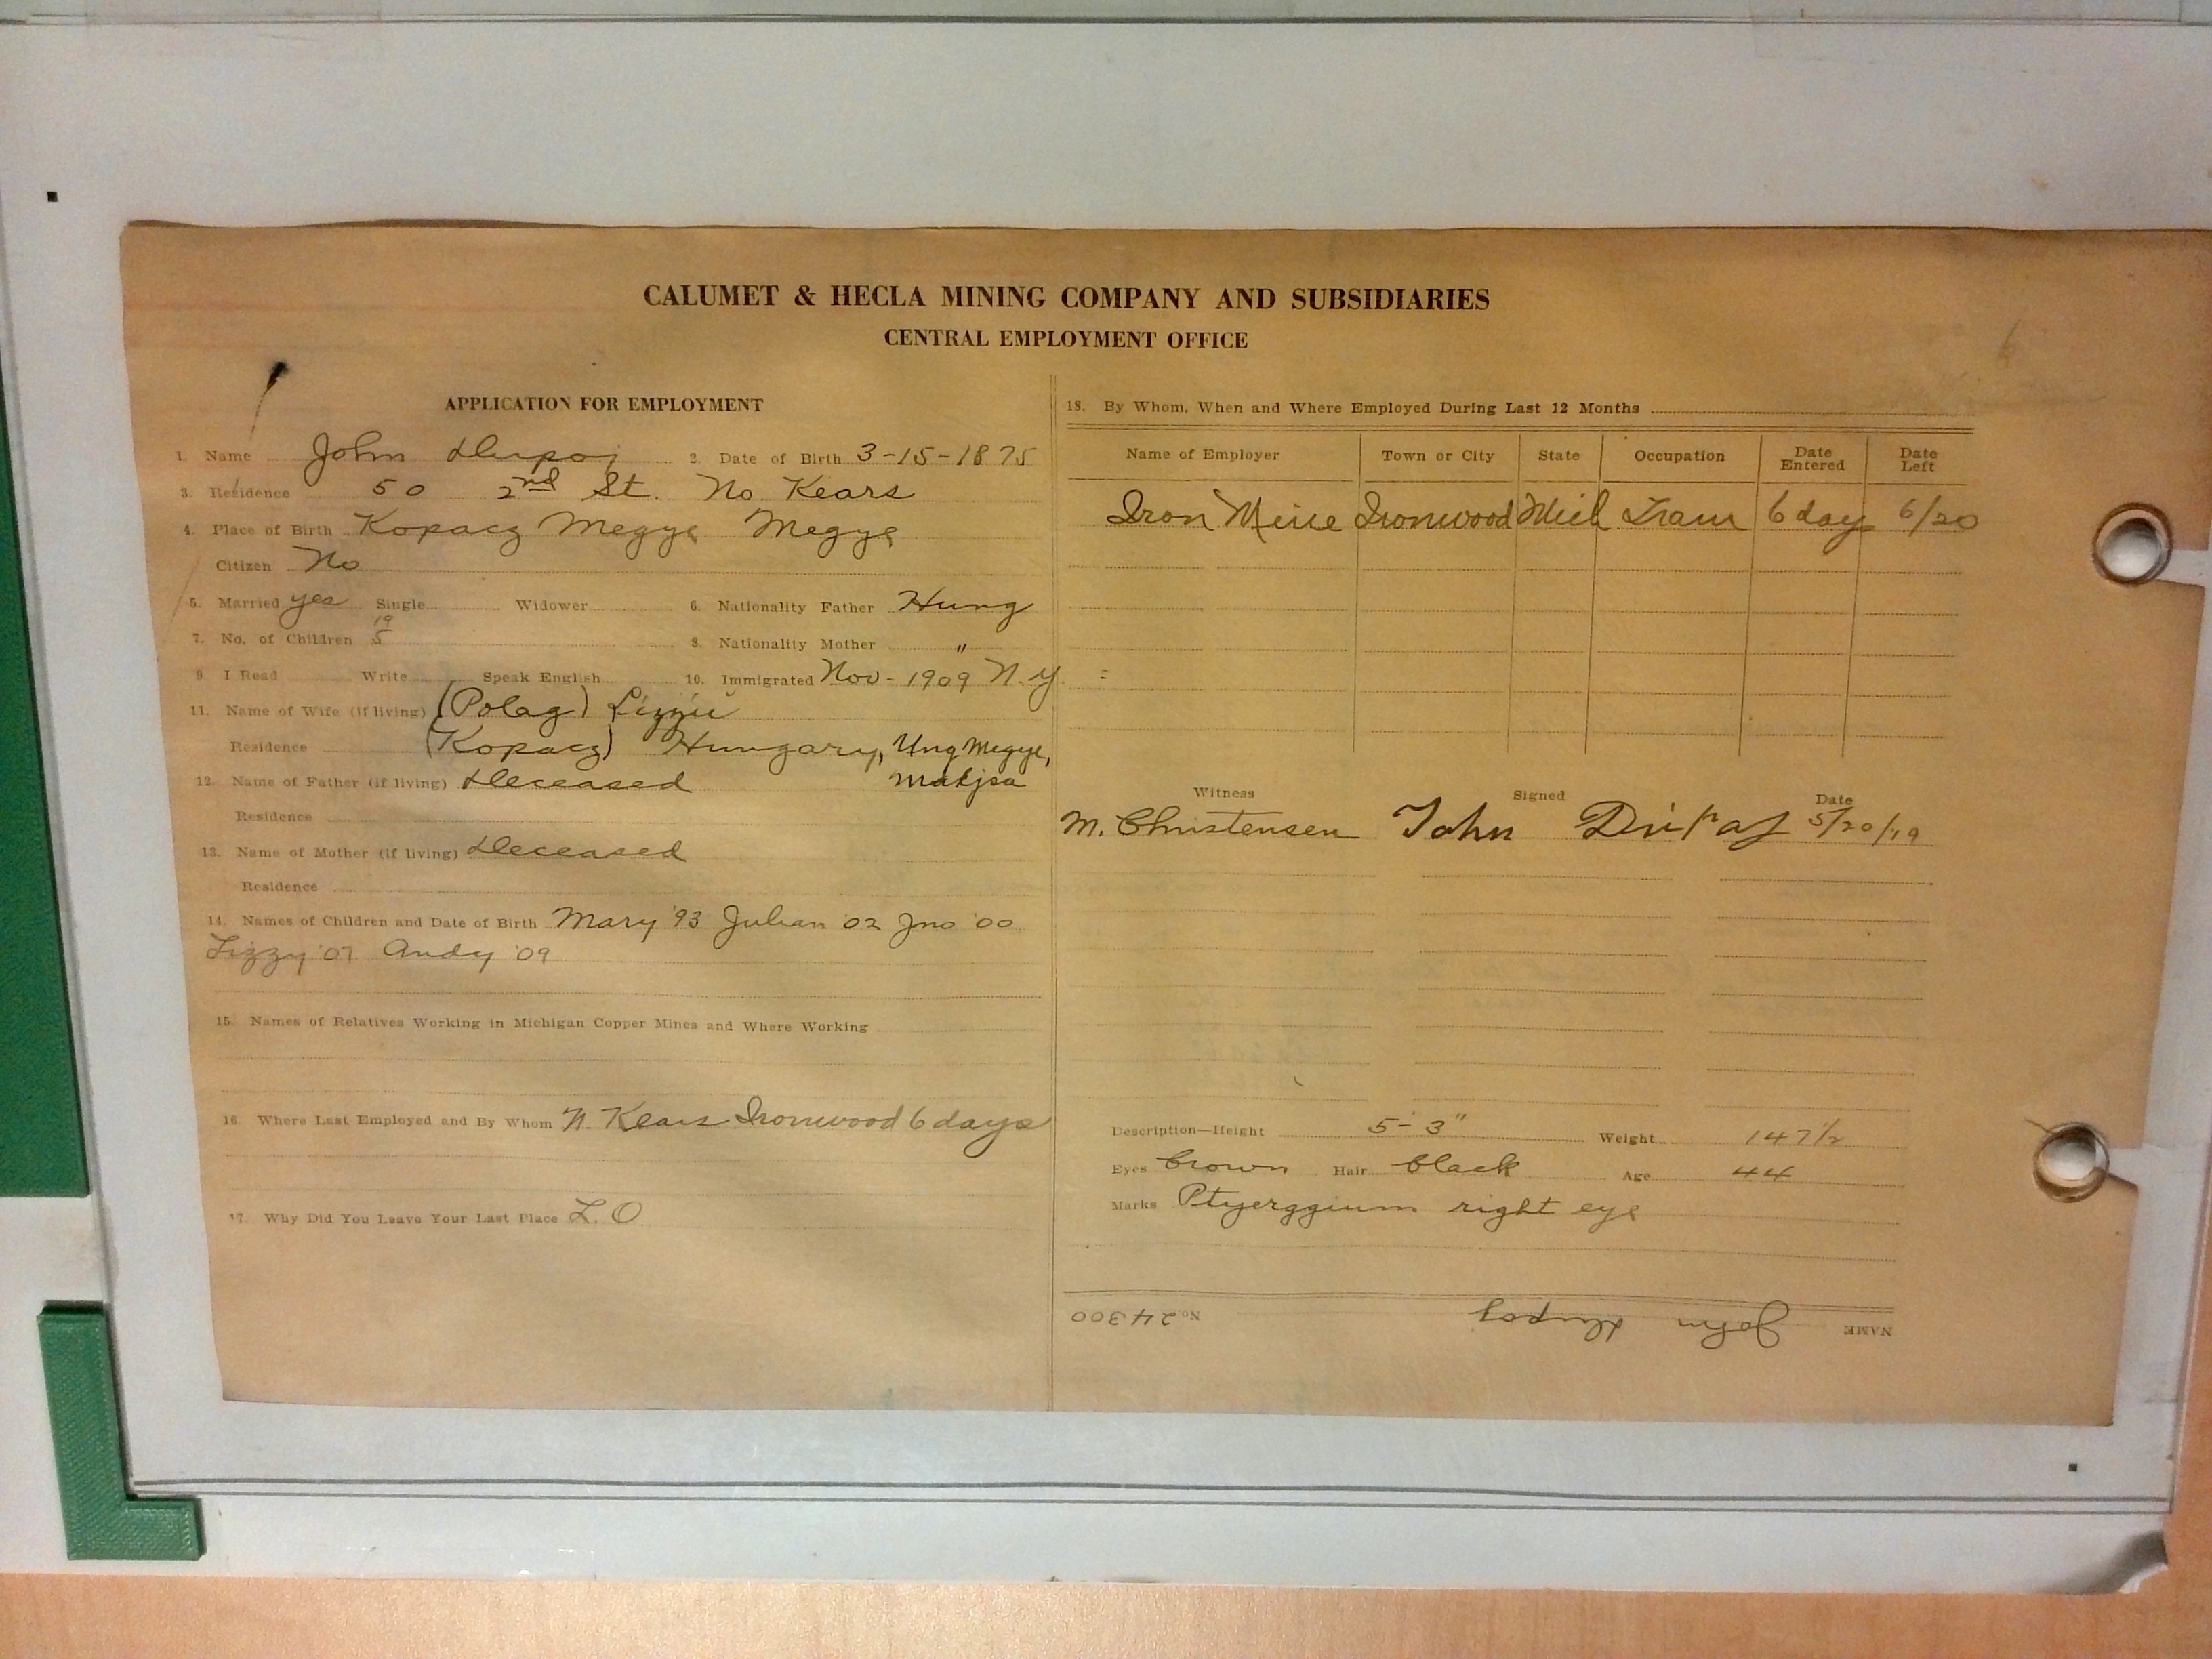 CALUMET & HECLA MINING COMPANY AND SUBSIDIARIES
CENTRAL EMPLOYMENT OFFICE
APPLICATION FOR EMPLOYMENT
1. Name John Dupoj 2. Date of Birth 3-15-1875
3. Residence 50 2nd St. No Kears
4. Place of Birth Kopacz Megye Megye
Citizen No
5. Married yes Single Widower 6. Nationality Father Hung
19
7. No. of Children 5 8. Nationality Mother "
9 I Read Write Speak English 10. Immigrated Nov - 1909 N.Y.
11. Name of Wife (if living) (Polag) Lizzie
Residence (Kopacz) Hungary, Ung Megye,
12. Name of Father (if living) Deceased
Residence
13. Name of Mother (if living) Deceased
Residence
14. Names of Children and Date of Birth Mary '93 Julian '02 Jno '00
Lizzy '07 Andy '09
15. Names of Relatives Working in Michigan Copper Mines and Where Working
16. Where Last Employed and By Whom N. Kears Ironwood 6 days
17. Why Did You Leave Your Last Place L.O
18. By Whom, When and Where Employed During Last 12 Months
Name of Employer Town or City State Occupation Date Entered Date Left
Iron Mine Ironwood Mich Tram 6 days 6/20
Witness Signed Date
M. Christensen John 5/20/19
Description—Height 5-3" Weight 147½
Eyes brown Hair black Age 44
Marks Ptyerggium right eye
NAME John Dupoj No. 24300